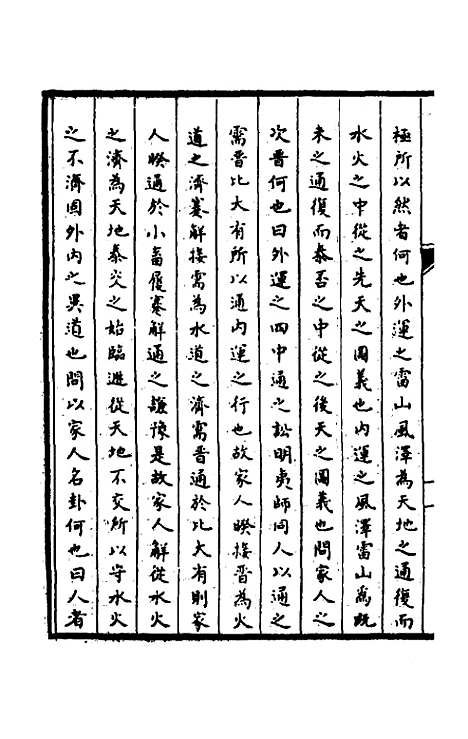 極所以然者何也外運之雷山風澤為天地之通復而
水火之中從之先天之圖義也內運之風澤雷山為既
未之通復而泰否之中從之後天之圖義也問家人之
次晉何也曰外運之四中通之訟明夷師同人以通之
需晉比大有所以通內運之行也故家人睽接晉為火
道之濟蹇解接需為水道之濟需晉通於比大有則家
人睽通於小畜履蹇解通之謙豫是故家人解從水火
之濟為天地泰交之始臨遯從天地不交所以守水火
之不濟固外內之異道也問以家人名卦何也曰人者